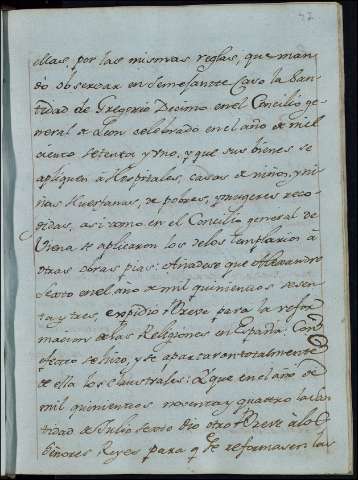 ellas, por las mismas reglas, que man
dó observar en semejante Caso la San
tidad de Gregorio Decimo en el Concilio ge
neral de Leon celebrado en el año de mil
ciento setenta y uno, y que sus bienes se
apliquen á Hospitales, casas de niños, y ni
ñas Huerfanas, de pobres, y mugeres reco
gidas, asi como en el Concilio general de
Viena se aplicaron los de los templarios á
otras obras pias: Añadese que Alexandro
Sexto en el año de mil quinientos sesen
ta y tres, expidió Breve para la refor
macion de las Religiones en España: Con
efecto se hizo, y se apartaron totalmente
de ella los Claustrales: Y que en el año de
mil quinientos nobenta y quattro la San
tidad de Julio Sexto dio otro Breve á los
Señores Reyes para q se reformasen las